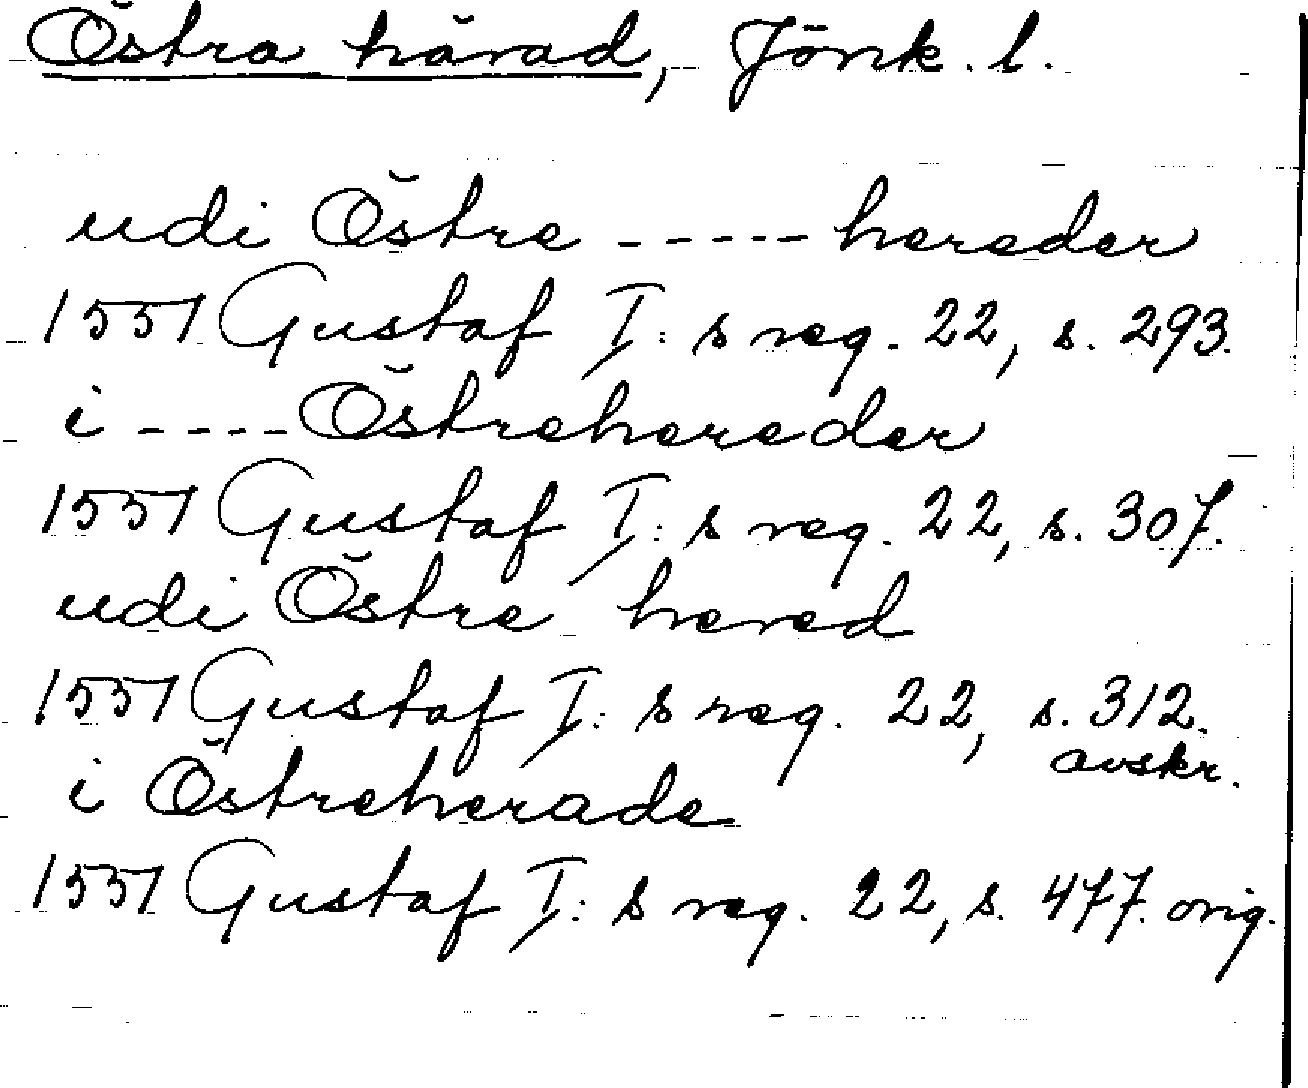 Östra härad, Jönk. l.
udi Östre ----- hereder
1551 Gustaf I:s reg. 22, s. 293.
i ---- Östrehereder
1551 Gustaf I:s reg. 22, s. 307.
udi Östre hered
1551 Gustaf I:s reg. 22, s. 312.
avskr.
i Östreherade
1551 Gustaf I:s reg. 22, s. 477. orig.